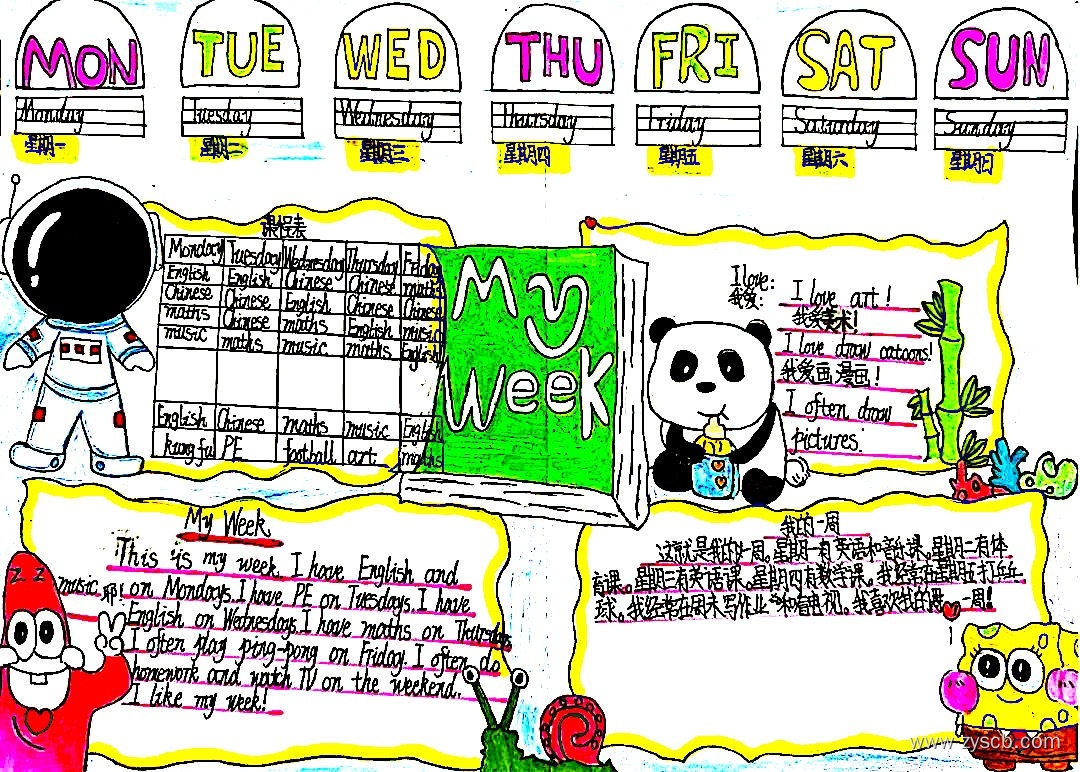 MON TUE WED THU FRI SAT SUN
Monday Tuesday Wednesday Thursday Friday Saturday Sunday
星期一 星期二 星期三 星期四 星期五 星期六 星期日
课程表
Monday Tuesday Wednesday Thursday Friday
English English Chinese Chinese maths
Chinese Chinese English Chinese Chinese
maths Chinese maths English music
music maths music maths English
English Chinese maths music English
kung fu PE football art maths
My
Week
I love:
我爱:
I love art!
我爱美术!
I love draw catoons!
我爱画漫画!
I often draw
pictures.
My Week
This is my week. I have English and
music 耶! on Mondays. I have PE on Tuesdays. I have
English on Wednesdays. I have maths on Thursdays
I often play ping-pong on Friday. I often do
homework and watch TV on the weekend.
I like my week!
我的一周
这就是我的一周。星期一有英语和音乐课。星期二有体
育课。星期三有英语课。星期四有数学课。我经常在星期五打乒乓
球。我经常在周末写作业和看电视。我喜欢我的一周!
www.zyscb.com